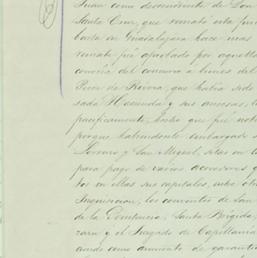 Juan como descendiente de Don
Santa Cruz, que remató esta fin
basta en Guadalajara hace mas
remate fué aprobado por aquella
del comercio a bienes del
Perez de Rivera, que había sido
sada Hacienda y sus anexas, lo
pacificamente, hecho que fué noto
porque habiendose embargado
Potrero y San Miguel, sitas en la
para pago de varios acreedores y
tos en ellas sus capitales, entre otro
Inquisicion, los conventos de San
de la Penitencia, Santa Brígida,
zara y el Juzgado de Capellanía
ciendo como aumento de garantía